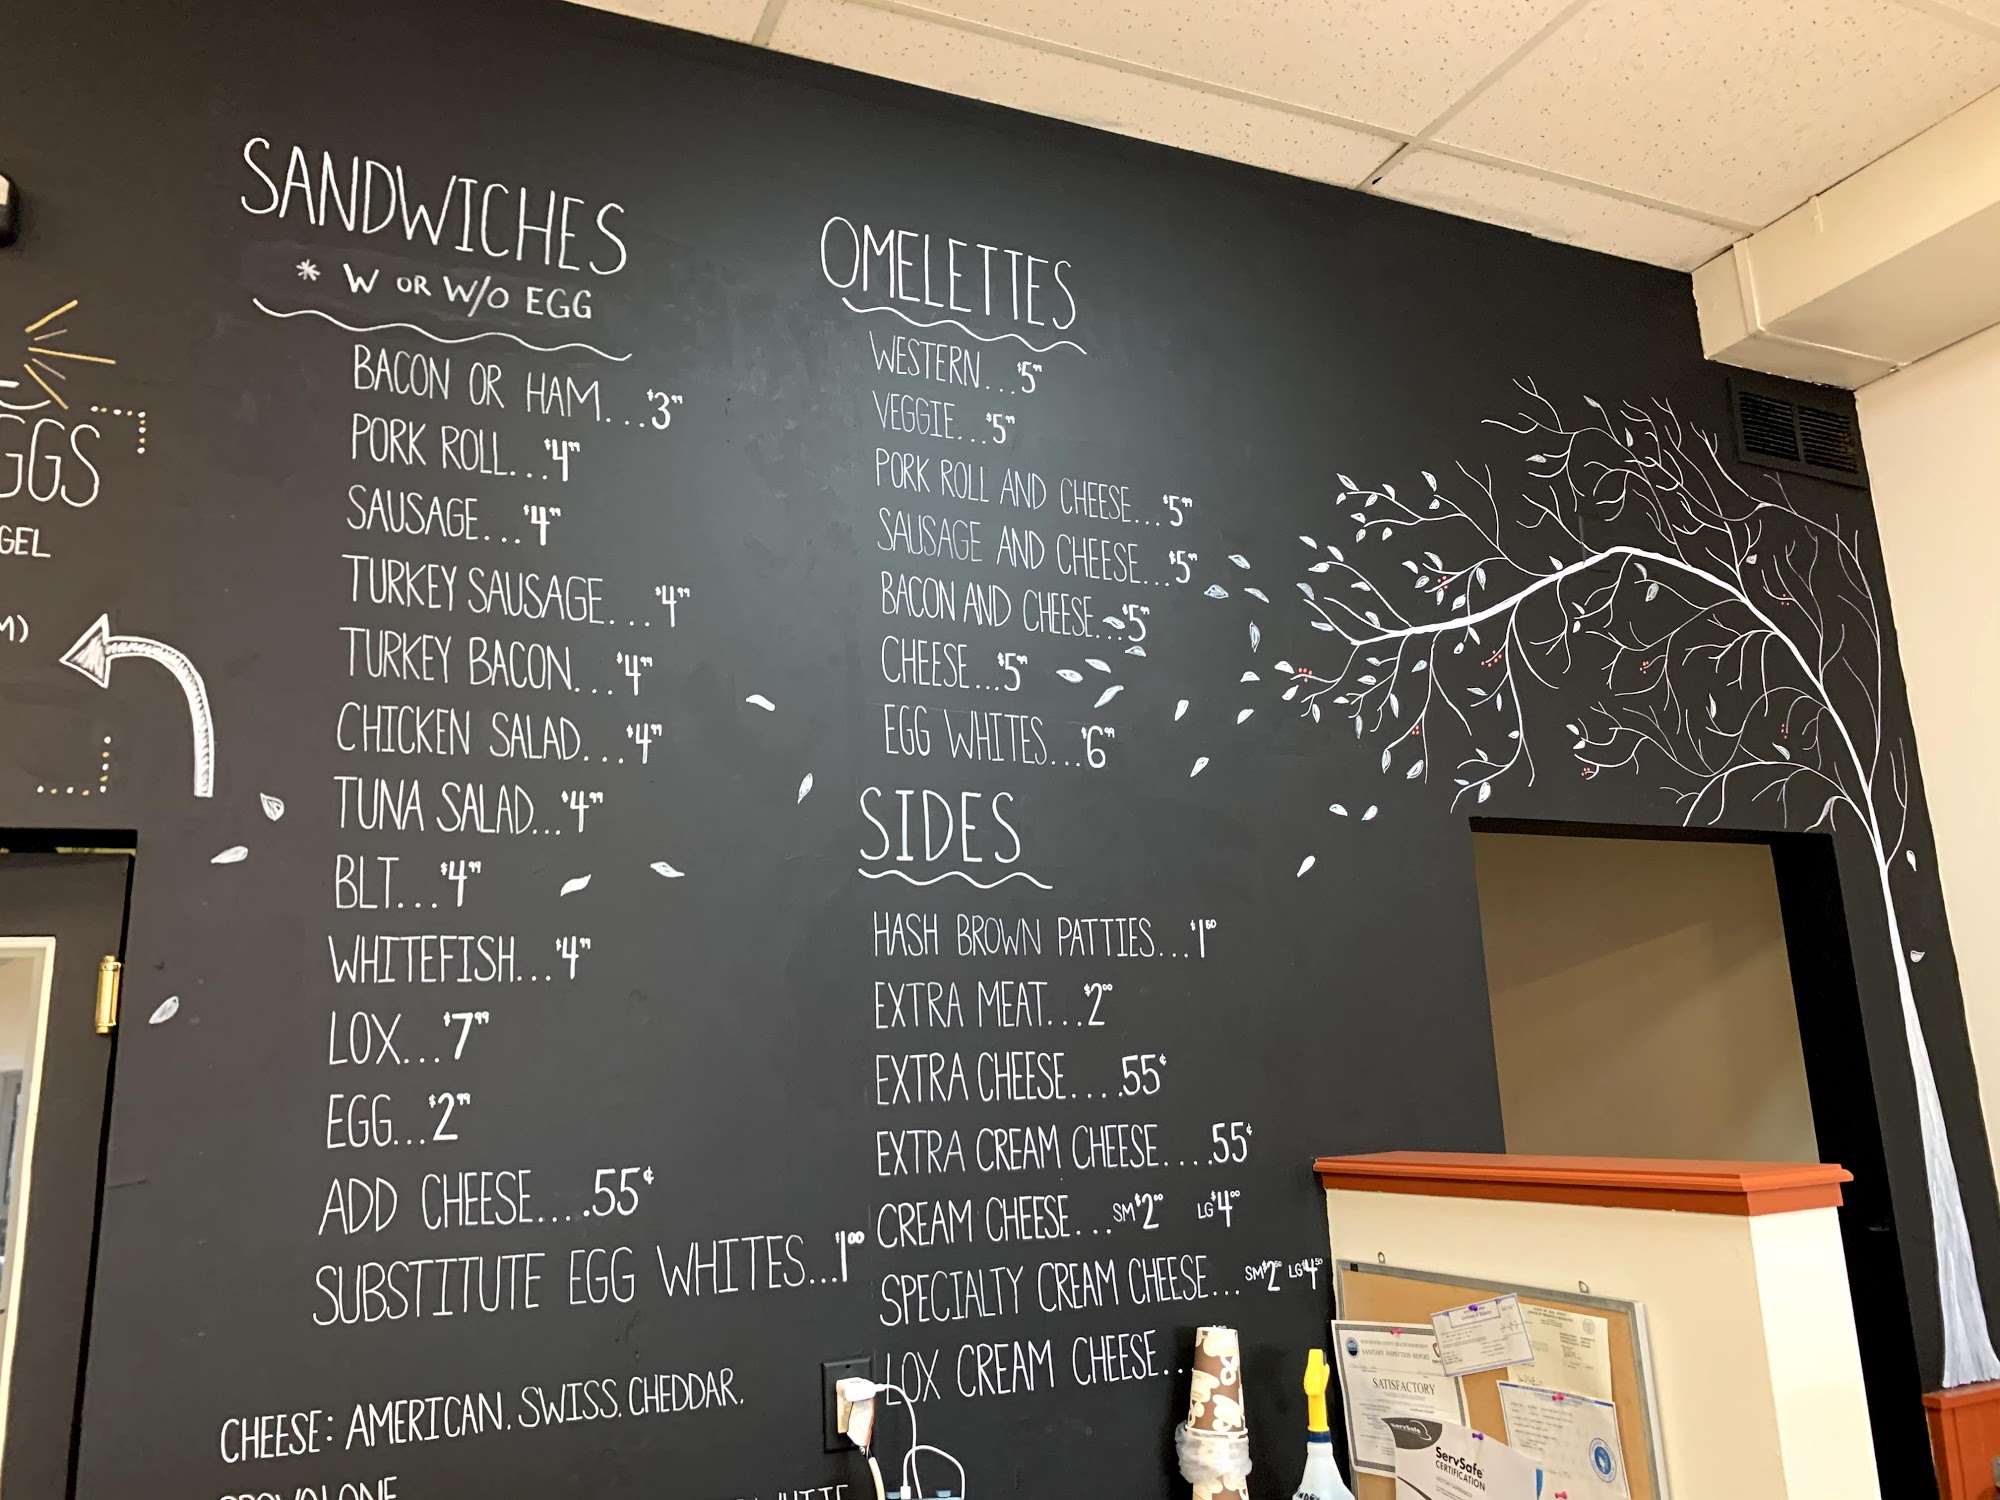 SANDWICHES
* W OR W/O EGG
BACON OR HAM...$3.99
PORK ROLL...$4.99
SAUSAGE...$4.99
TURKEY SAUSAGE...$4.99
TURKEY BACON...$4.99
CHICKEN SALAD...$4.99
TUNA SALAD...$4.99
BLT...$4.99
WHITEFISH...$4.99
LOX...$7.99
EGG...$2.99
ADD CHEESE....55¢
SUBSTITUTE EGG WHITES...$1.00
CHEESE: AMERICAN. SWISS. CHEDDAR.
OMELETTES
WESTERN...$5.99
VEGGIE...$5.99
PORK ROLL AND CHEESE...$5.99
SAUSAGE AND CHEESE...$5.99
BACON AND CHEESE...$5.99
CHEESE...$5.99
EGG WHITES...$6.99
SIDES
HASH BROWN PATTIES...$1.50
EXTRA MEAT...$2.00
EXTRA CHEESE....55¢
EXTRA CREAM CHEESE....55¢
CREAM CHEESE...SM $2.00 LG $4.00
SPECIALTY CREAM CHEESE...SM $2.50 LG $4.50
LOX CREAM CHEESE...
GGS
GEL
M)
SANITARY INSPECTION REPORT
SATISFACTORY
ServSafe
ServSafe
CERTIFICATION